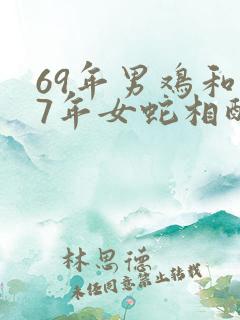 69年男鸡和
7年女蛇相配
林思德
未经同意禁止转载